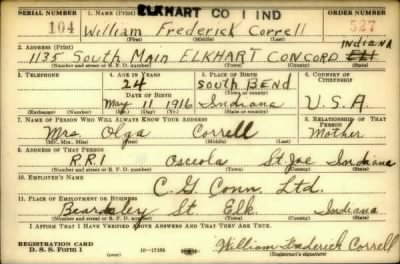 ELKHART CO 1 IND
SERIAL NUMBER 1. NAME (Print) ORDER NUMBER
104 William Frederick Correll 527
(First) (Middle) (Last)
2. ADDRESS (Print) INDIANA
1135 SOUTH MAIN ELKHART CONCORD
(Number and street or R. F. D. number) (Town) (County) (State)
3. TELEPHONE 4. AGE IN YEARS 5. PLACE OF BIRTH 6. COUNTRY OF CITIZENSHIP
24 SOUTH BEND
DATE OF BIRTH (Town or county)
May 11 1916 Indiana U.S.A.
(Exchange) (Number) (Mo.) (Day) (Yr.) (State or country)
7. NAME OF PERSON WHO WILL ALWAYS KNOW YOUR ADDRESS 8. RELATIONSHIP OF THAT PERSON
Mrs. Olga Correll Mother
(Mr., Mrs., Miss) (First) (Middle) (Last)
9. ADDRESS OF THAT PERSON
R.R.1 Osceola St. Joe Indiana
(Number and street or R. F. D. number) (Town) (County) (State)
10. EMPLOYER'S NAME
C. G. Conn. Ltd.
11. PLACE OF EMPLOYMENT OR BUSINESS
Beardsley St. Elk. Indiana
(Number and street or R. F. D. number) (Town) (County) (State)
I AFFIRM THAT I HAVE VERIFIED ABOVE ANSWERS AND THAT THEY ARE TRUE.
REGISTRATION CARD
D. S. S. Form 1 16-17105 William Frederick Correll
(Registrant's signature)